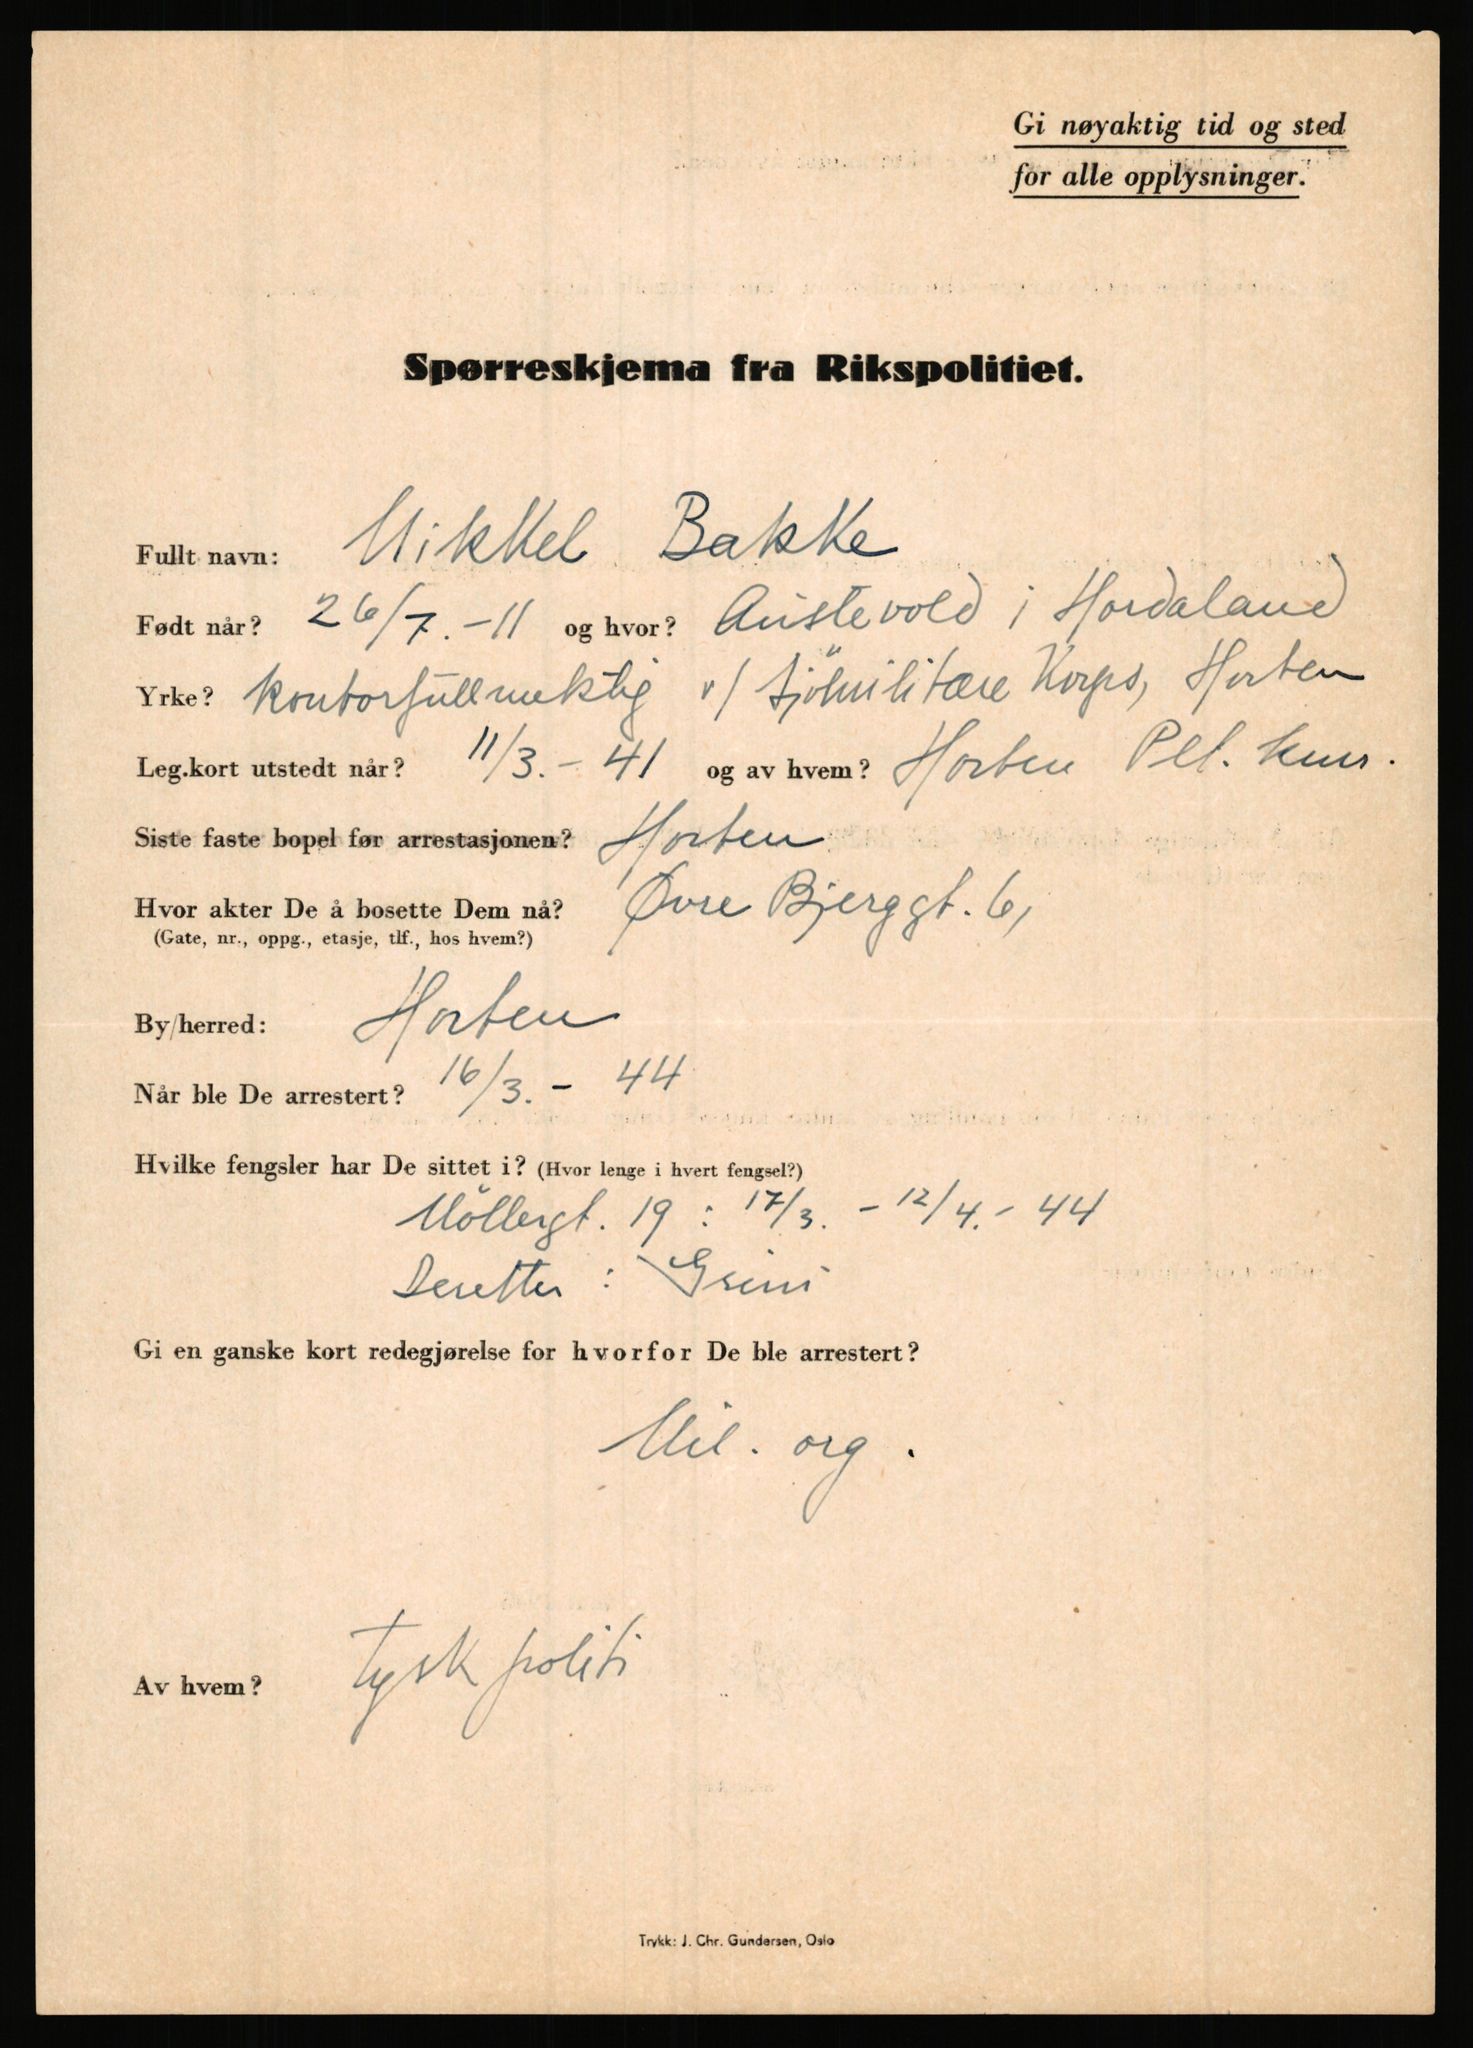 Gi nøyaktig tid og sted
for alle opplysninger.
Spørreskjema fra Rikspolitiet.
Fullt navn: Mikkel Bakke
Født når? 26/7.-11 og hvor? Austevold i Hordaland
Yrke? Kontorfullmektig v/ Sjömilitære Korps, Horten
Leg.kort utstedt når? 11/3.-41 og av hvem? Horten Pol. kmr.
Siste faste bopel før arrestasjonen? Horten
Hvor akter De å bosette Dem nå? Øvre Bjerggt. 6,
(Gate, nr., oppg., etasje, tlf., hos hvem?)
By/herred: Horten
Når ble De arrestert? 16/3.-44
Hvilke fengsler har De sittet i? (Hvor lenge i hvert fengsel?)
Möllergt. 19 : 17/3. - 12/4.-44
Deretter : Grini
Gi en ganske kort redegjørelse for hvorfor De ble arrestert?
Mil. org.
Av hvem? Tysk politi
Trykk: J. Chr. Gundersen, Oslo